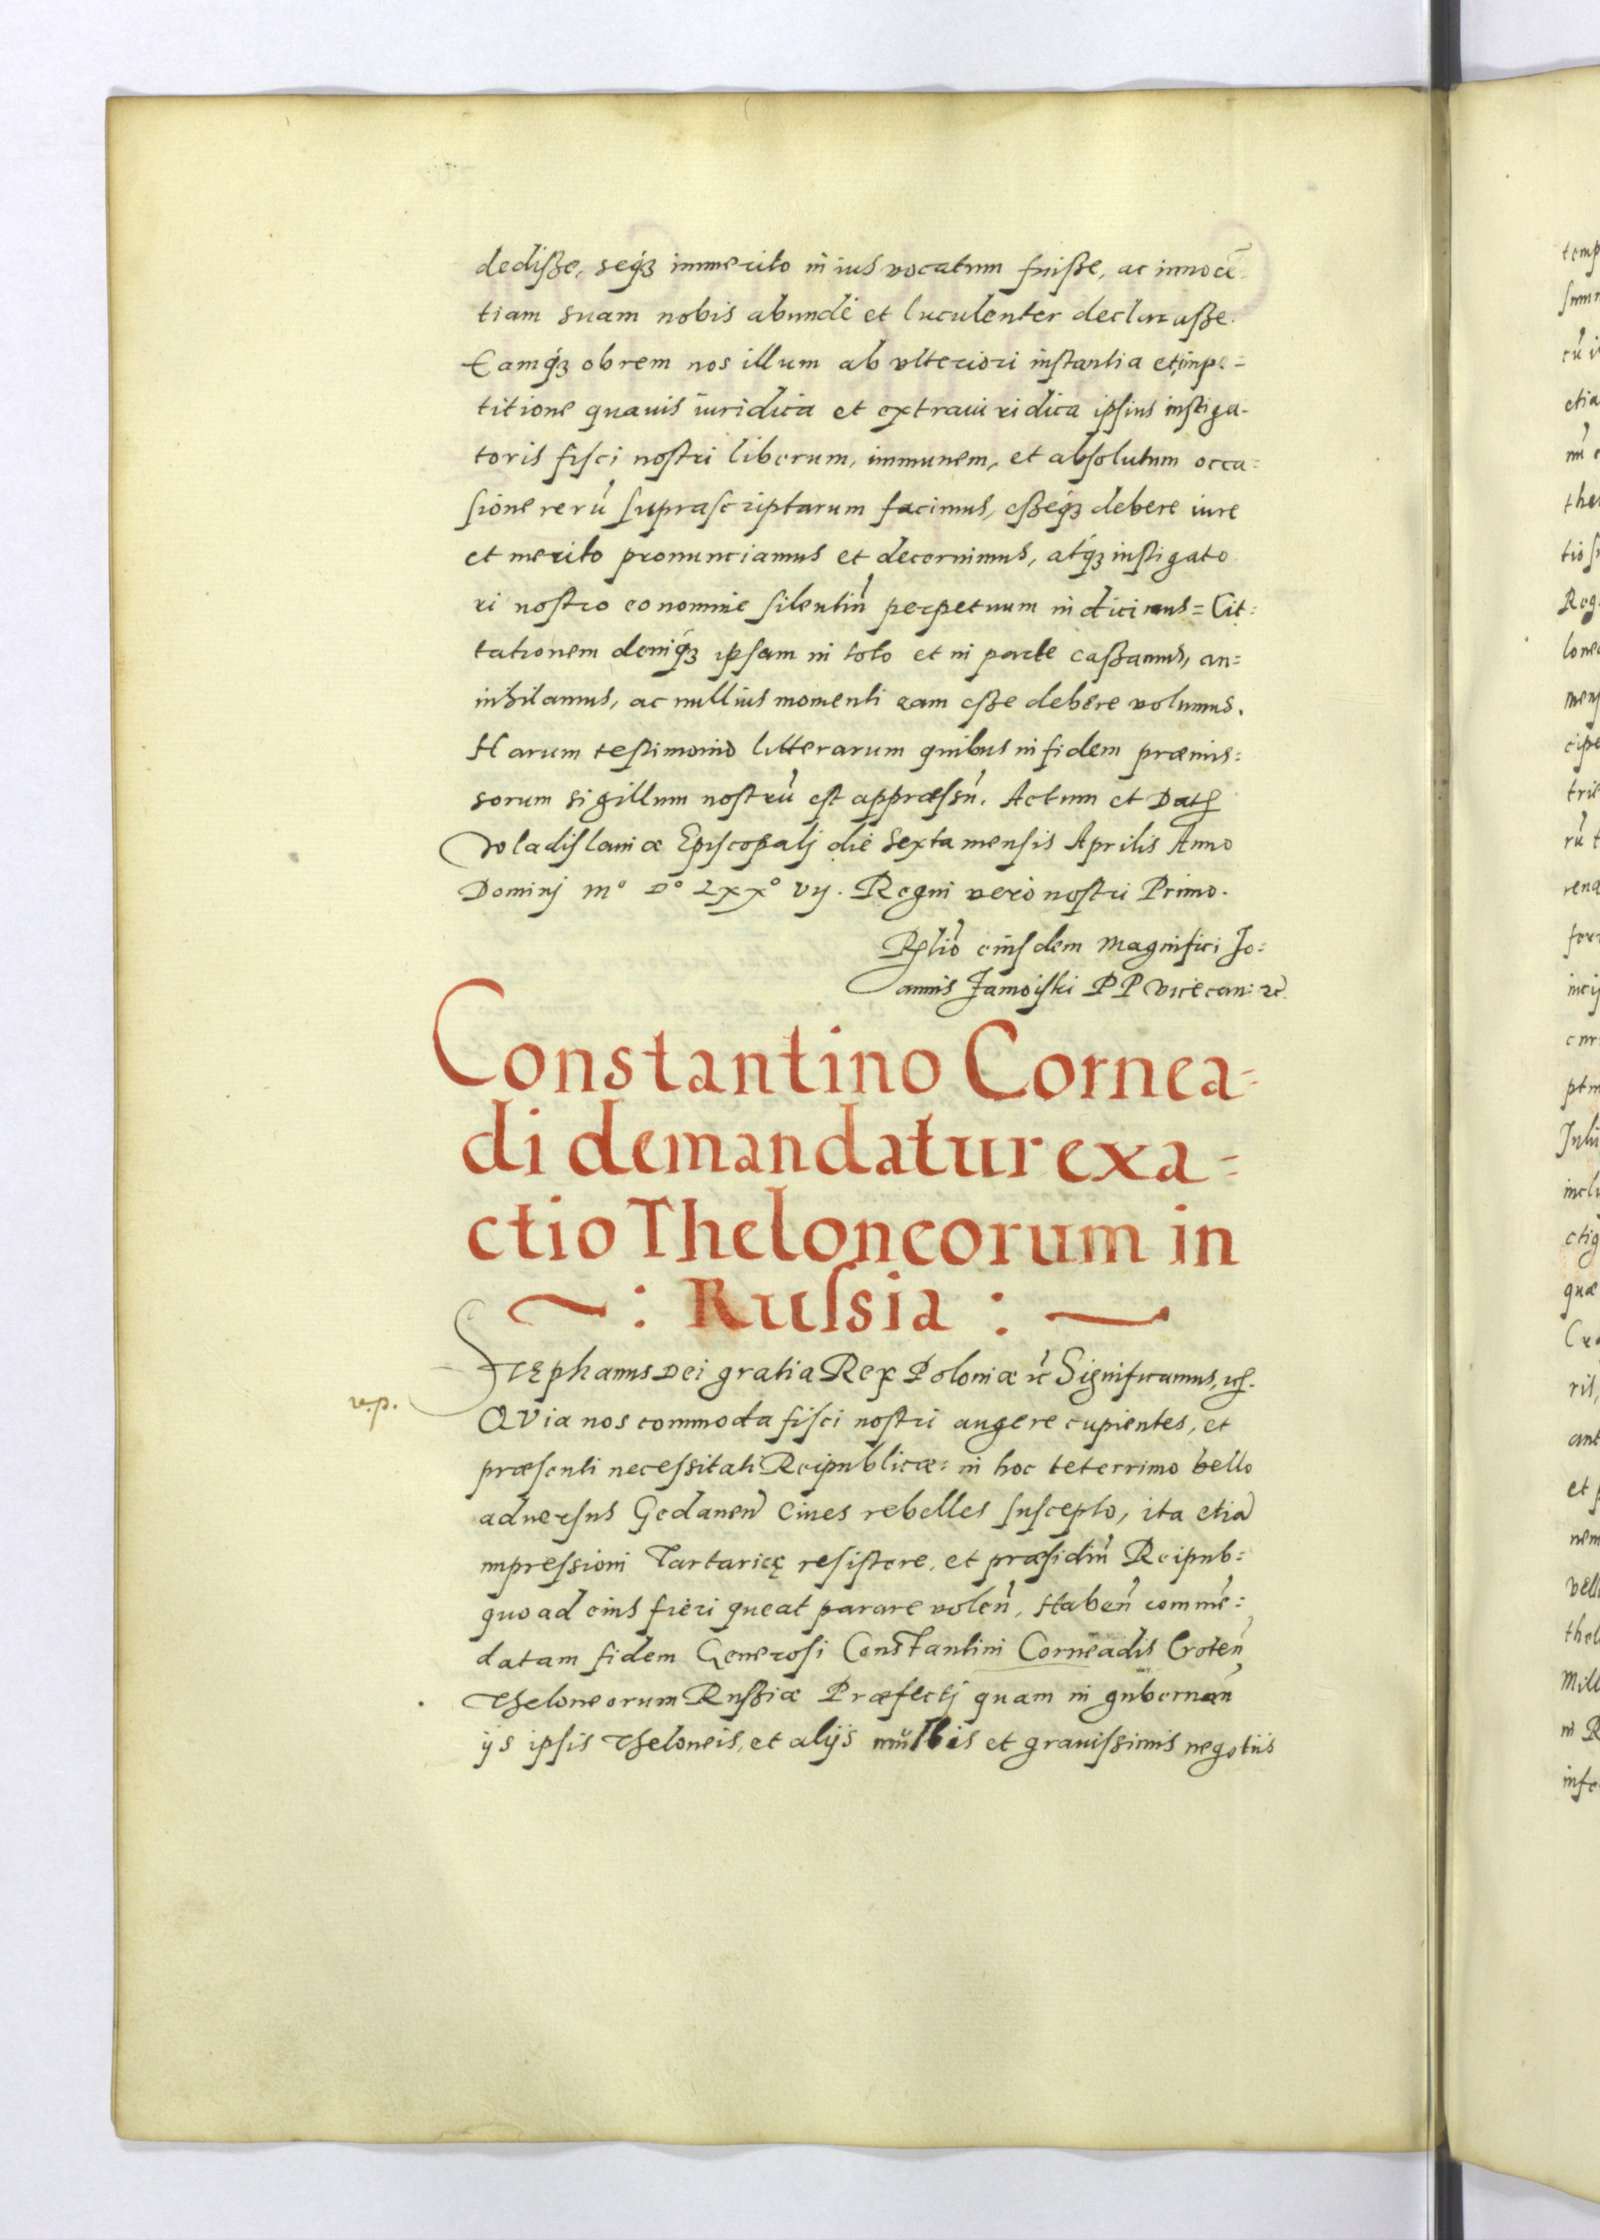 dedisße, seqȝ immerito in ius vocatum fuisße, ac innocē-
tiam suam nobis abundè et luculenter declarasße.
Eamqȝ obrem nos illum ab vlteriori instantia et impe=
titione quauis iuridica et extraiuridica ipsius instiga-
toris fisci nostri liberum, immunem, et absolutum occa=
sione rerū suprascriptarum facimus, esßeqȝ debere iure
et merito pronunciamus et decernimus, atqȝ instigato
ri nostro eo nomine silentiū perpetuum indicimus = Cit=
tationem deniqȝ ipsam in toto et in parte casßamus, an=
inhilamus, ac nullius momenti eam esße debere volumus.
Harum testimonio litterarum quibus in fidem præmis=
sorum sigillum nostrū est appræssū. Actum et Datȝ
Vvladislauiæ Episcopalj die sexta mensis Aprilis Anno
Dominj m° D° Lxx° vij. Regni vero nostri Primo.
Rȩlio eiusdem Magnifici Jo=
annis Zamoiski PP vicecan: ꝛc̄
Constantino Cornea=
di demandatur exa=
ctio Theloneorum in
~: Rusſia : ~
Stephanus Dei gratia Rex Poloniæ ꝛc̄ Significamus, ꝛc̄.
v.p.
QVia nos commoda fisci nostri augere cupientes, et
præsenti necessitati Reipublicæ: in hoc teterrimo bello
aduersus Gedanen̄ Ciues rebelles suscepto, ita etiā
impressioni Tartaricę resistere, et præsidiū Reipub=
quoad eius fieri queat parare volen̄, Haben̄ commē=
datam fidem Generosi Constantini Corneadis Croten̄
Theloneorum Rusßiæ Præfectj quam in gubernan̄
ijs ipsis Theloneis, et alijs multis et grauissimis negotiis
temp
cū i
etia
the
tio
Reg
lone
mens
cipe
trib
rū t
rena
cur
inclu
ctig
quæ
ris,
ant
et
nem
vell
thel
Mill